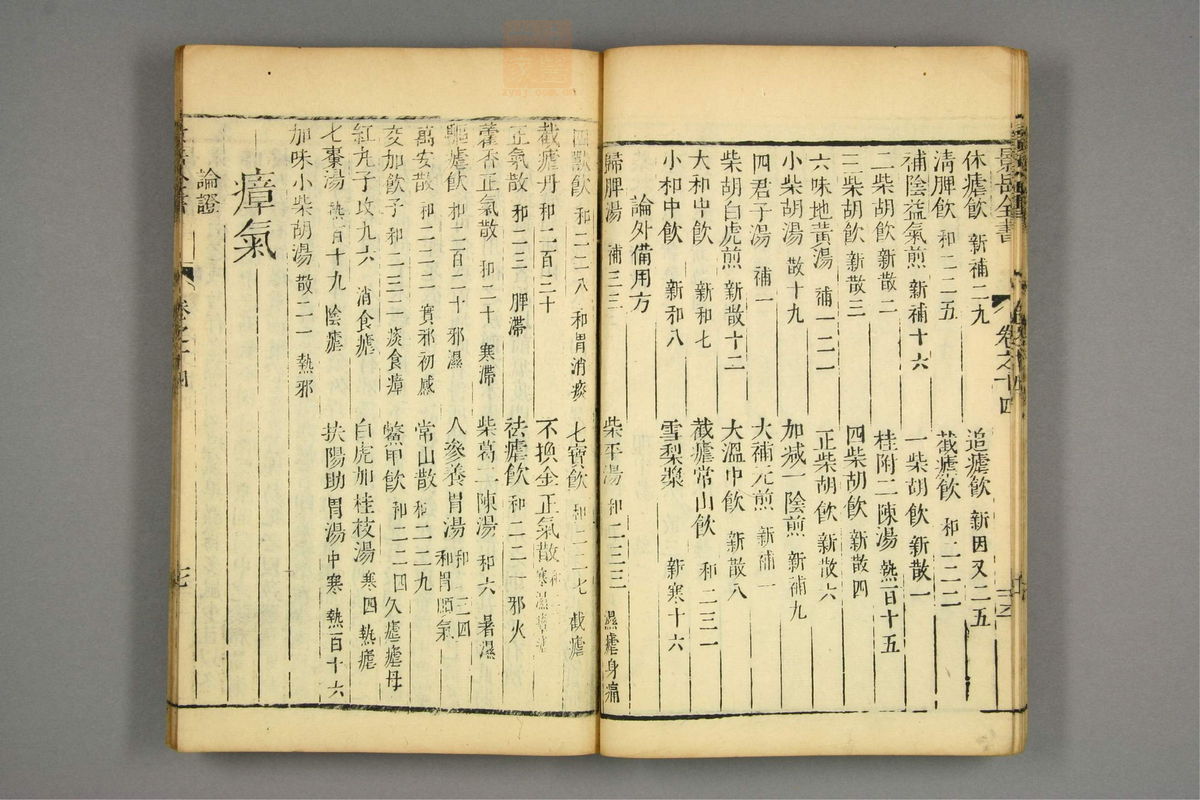 景岳全書 卷之十四
休瘧飲 新補二九 追瘧飲 新因又二五
清脾飲 和二二五 截瘧飲 和二二二
補陰益氣煎 新補十六 一柴胡飲 新散一
二柴胡飲 新散二 桂附二陳湯 熱百十五
三柴胡飲 新散三 四柴胡飲 新散四
六味地黃湯 補一二一 正柴胡飲 新散六
小柴胡湯 散十九 加減一陰煎 新補九
四君子湯 補一 大補元煎 新補一
柴胡白虎煎 新散十二 大溫中飲 新散八
大和中飲 新和七 截瘧常山飲 和二三一
小和中飲 新和八 雪梨漿 新寒十六
論外備用方
歸脾湯 補三二 柴平湯 和二三三 濕瘧身痛
四獸飲 和二二八 和胃消痰 七寶飲 和二二七 截瘧
截瘧丹 和二百三十 不換金正氣散 和 寒濕瘴瘧
正氣散 和二三 脾滯 祛瘧飲 和二二一 邪火
藿香正氣散 和二十 寒滯 柴葛二陳湯 和六 暑濕
驅瘧飲 和二百二十 邪濕 人參養胃湯 和二三四 和胃順氣
萬安散 和二二二 實邪初感 常山散 和二二九
交加飲子 和二三二 痰食瘴 鱉甲飲 和二二四 久瘧瘧母
紅丸子 攻九六 消食瘧 白虎加桂枝湯 寒四 熱瘧
七棗湯 熱百十九 陰瘧 扶陽助胃湯 中寒 熱百十六
加味小柴胡湯 散二一 熱邪
瘴氣
論證
卷之十四